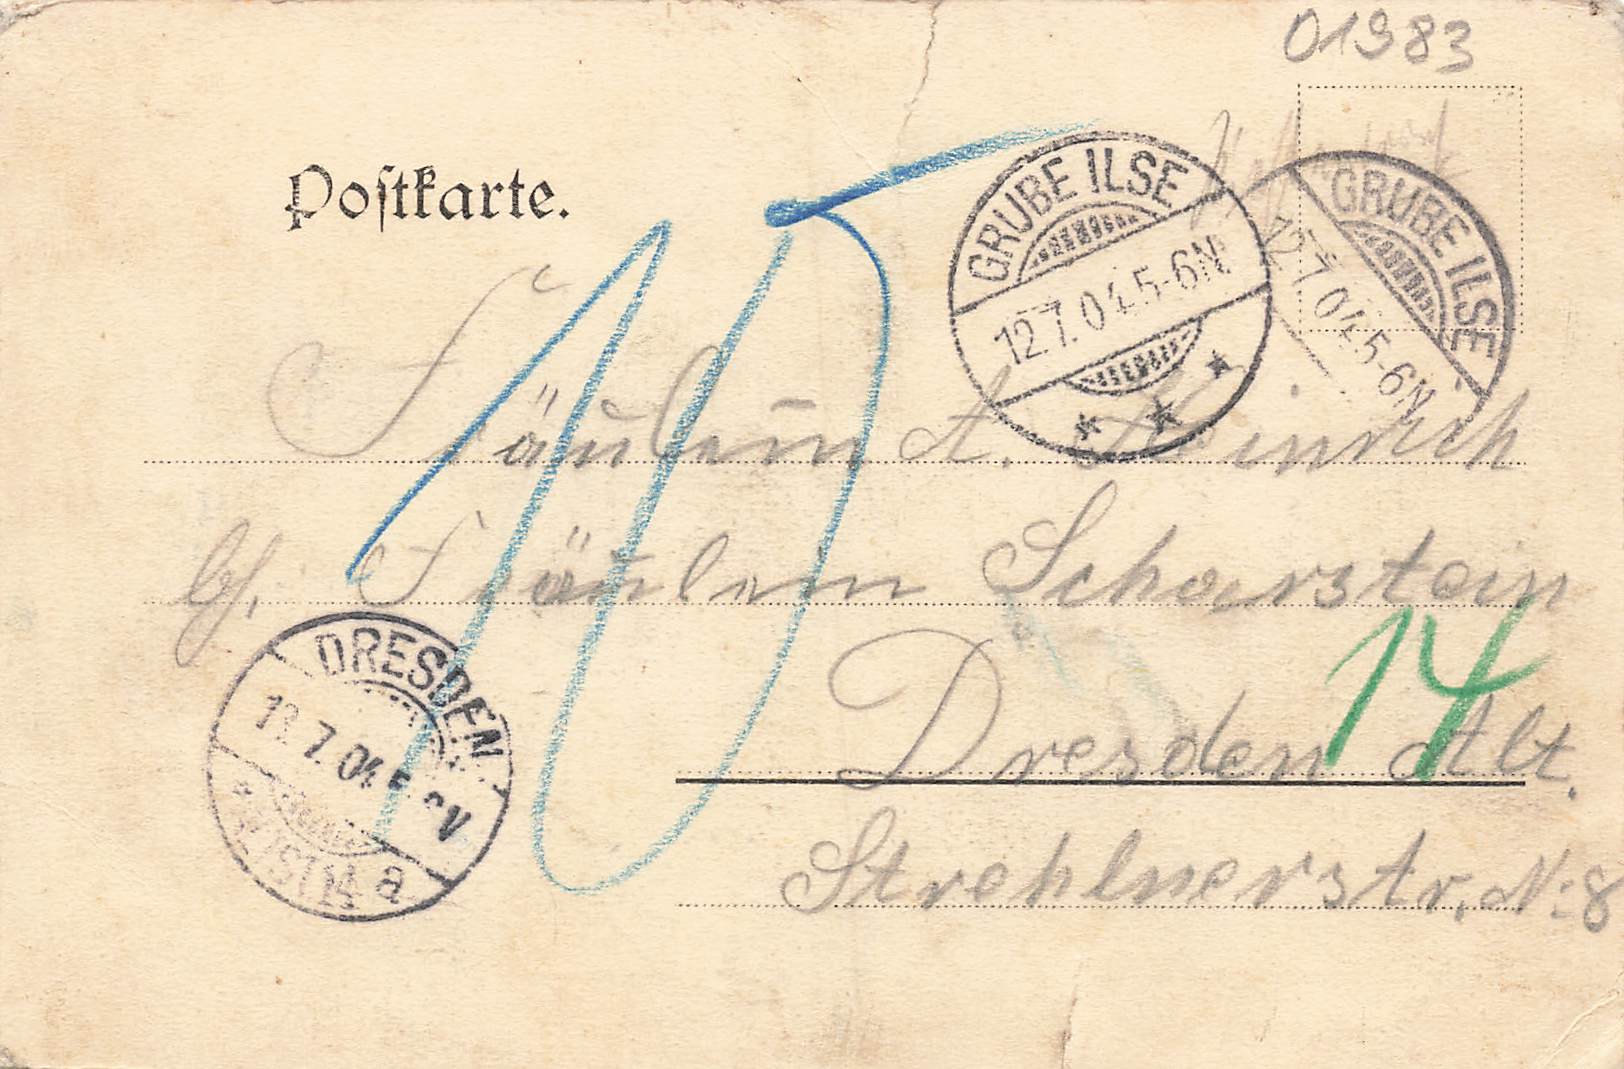 01983
Postkarte.
GRUBE ILSE
12.7.04.5-6N.
GRUBE ILSE
12.7.04.5-6N.
10
Fräulein A. Heinrich
bf. Fräulein Scharstein
14
Dresden Alt.
Strehlnerstr. N: 8
DRESDEN
13.7.04
ALTST 14 a.